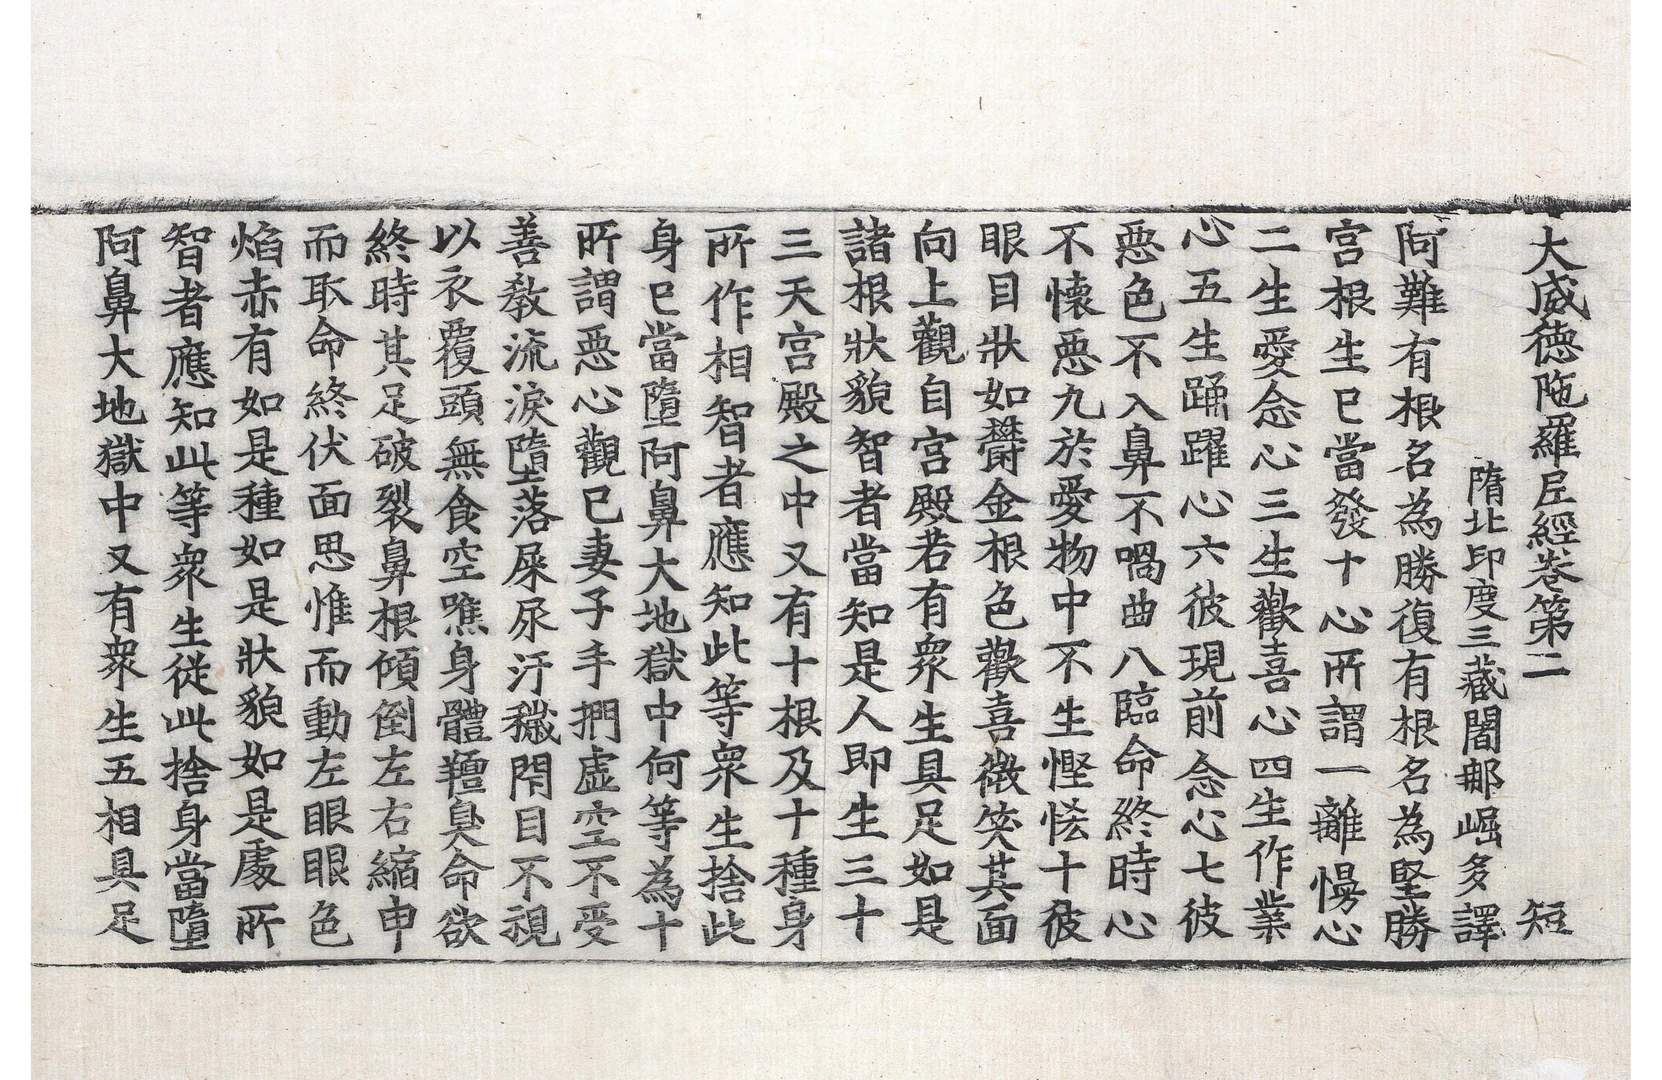 大威德陁羅尼經卷第二 短
隋北印度三藏闍那崛多譯
阿難有根名為勝復有根名為堅勝
宮根生已當發十心所謂一離慢心
二生愛念心三生歡喜心四生作業
心五生踊躍心六彼現前念心七彼
惡色不入鼻不喎曲八臨命終時心
不懷惡九於愛物中不生慳悋十彼
眼目狀如欝金根色歡喜微笑其面
向上觀自宮殿若有衆生具足如是
諸根狀貌智者當知是人即生三十
三天宮殿之中又有十根及十種身
所作相智者應知此等衆生捨此
身已當墮阿鼻大地獄中何等為十
所謂惡心觀已妻子手捫虛空不受
善教流淚墮落屎尿汙穢閇目不視
以衣覆頭無食空噍身體羶臭命欲
終時其足破裂鼻根傾倒左右縮申
而取命終伏面思惟而動左眼眼色
焰赤有如是種如是狀貌如是處所
智者應知此等衆生從此捨身當墮
阿鼻大地獄中又有衆生五相具足